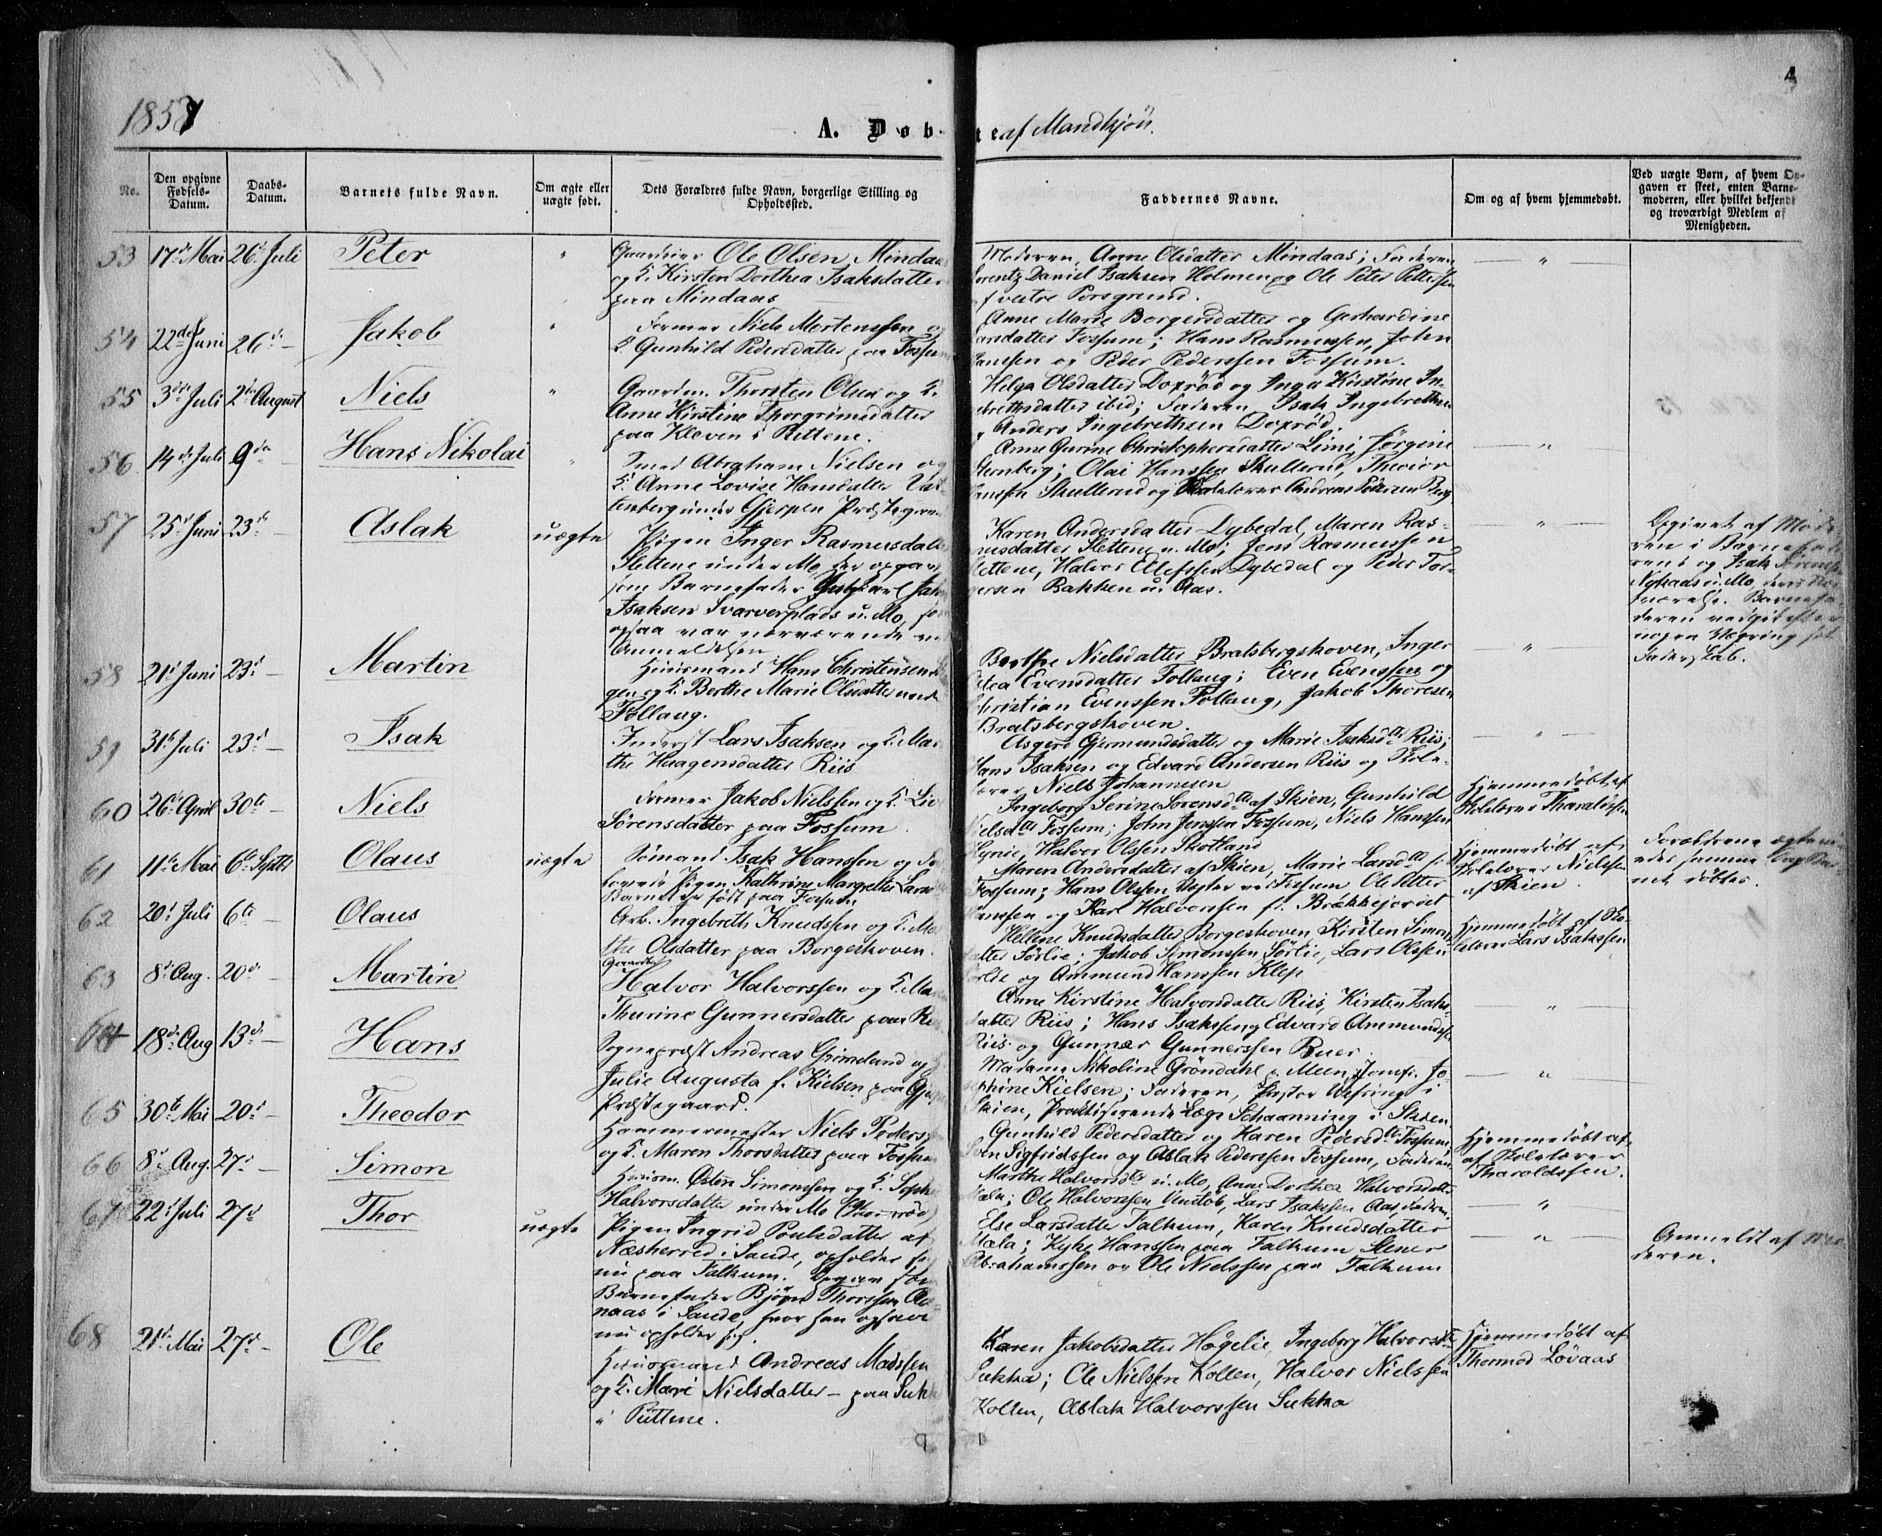 1857
4
A. Døb-
te af Mandkjøn.
No.
Den opgivne Fødsels-Datum.
Daabs-Datum.
Barnets fulde Navn.
Om ægte eller uægte født.
Dets Forældres fulde Navn, borgerlige Stilling og Opholdssted.
Faddernes Navne.
Om og af hvem hjemmedøbt.
Ved uægte Børn, af hvem Op-
gaven er skeet, enten Barne-
moderen, eller hvilket bekjendt
og troværdigt Medlem af
Menigheden.
53 17de Mai 26de Juli Peter "
Ole Olsen Mindaas
og K. Kirsten Dorthea Isaksdatter
paa Mindaas
Moderen, Anne Olsdatter Mindaas; Faderen
Daniel Isaksen Holmen og Ole Peter Pettersen
vestre Porsgrund.
"
54 22de Juni 26de — Jakob "
Former Niels Mortenssen og
K. Gunhild Pedersdatter paa Fossum
Anne Marie Borgersdatter og Gerhardine
Larsdatter Fossum; Hans Rasmussen, John
Hanssen og Peder Pederssen Fossum.
55 3die Juli 2den August Niels "
Gaardm. Thorsten Olsen og K.
Anne Kirstine Thorgrimsdatter
paa Kleven i Rettene.
Helga Olsdatter Doxrød og Inger Kirstine In-
gebrethsdatter ibid; Faderen, Isak Ingebrethsen
Anders Ingebrethsen Doxrød.
56 14de Juli 9de Hans Nikolai "
Smed Abraham Nielsen og
K. Anne Lovise Hansdatter
under Gjerpen Præstegaard
Anne Gurine Christophersdatter Limi, Jørgine
Olai Hanssen Skullerud,
Hanssen Skullerud og Andreas Pedersen
"
57 25de Juni 23de Aslak uægte
Pigen Inger Rasmusdatter
Slettene under Mo, der opgav
som Barnefader Ungkarl
Isaksen Svarverplads u. Mo,
ogsaa var nærværende
Anmeldelsen
Karen Andersdatter Dybedal, Maren Ras-
musdatter Slettene u. Mo; Jens Rasmussen
Slettene, Halvor Elefssen Dybedal og Peder Tor-
gersen Bakken u. Aas.
"
Opgivet af Mode-
ren i Barnefade-
rens og Isak
u. Mo, deres
værelse. Barnefa-
deren vedgik efter
nogen Vægring sit
Faderskab.
58 21de Juni 23de Martin
Huusmand Hans Christensen
og K. Berthe Marie Olsdatter under
Follaug.
Berthe Nielsdatter Bratsbergskoven, Inger
Evensdatter Follaug; Even Evenssen og
Christian Evenssen Follaug, Jakob Thoresen
Bratsbergskoven.
"
59 31te Juli 23de — Isak
Inderst Lars Isaksen og K. Mar-
the Haagensdatter Riis
Asgerd Gjermundsdatter og Marie Isaksdtr Riis;
Hans Isaksen og Edvard Andersen Riis og Skole-
lærer Niels Johannesen
"
60 26de April 30te — Niels
Former Jakob Nielssen og K. Live
Sørensdatter paa Fossum
Ingeborg Serine Sørensdtr af Skien, Gunhild
Nielsdtr Fossum; John Jenssen Fossum, Niels Hanssen
Halvor Olssen Skotland
Hjemmedøbt af
Skolelærer Tharaldssen
61 11te Mai 6te Septbr Olaus uægte
Sømand Isak Hanssen og
Pigen Kathrine Margrethe Lars
Barnet er født paa Fossum
Maren Andersdatter af Skien, Marie Larsdtr
Fossum; Hans Olssen ved Fossum Ole Petter
Hanssen og Karl Halvorssen fr. Brækkejordet
Hjemmedøbt af
Skolelærer Nielsen
af Skien.
Forældrene
62 20de Juli 6te Olaus
Arb. Ingebreth Knudssen og K. Mar-
the Olsdatter paa Borgeskoven.
Hellene Knudsdatter Borgeskoven, Kirsten Simons-
datter Sørlie; Jakob Simonssen Sørlie, Lars Olssen
Sørlie og Ammund Hanssen Klep
Hjemmedøbt af Sko-
lelærer Lars Isakssen
63 8de Aug. 20de — Martin
Gaardbr.
Halvor Halvorssen og K. Maren
Thurine Gunnersdatter paa Riis
Anne Kirstine Halvorsdatter Riis, Kirsten Isaks-
datter Riis; Hans Isakssen og Edvard Ammundssen
Riis og Gunnar Gunnerssen Buer
"
64 18de Aug 13de — Hans
Sogneprest Andreas Grimelund og
Julie Augusta f. Kielsen paa Gjerpen
Præstegaard.
Madame Nikoline Grøndahl, Jomfr. Jo-
sephine Kielsen; Faderen, Pastor i
Skien, Praktiserende Læge Schaanning i Skien
"
65 30te Mai 20de — Theodor
Hammermester Niels Peders
og K. Maren Thorsdatter paa Fossum
Gunhild Pedersdatter og Karen Pedersdtr Fossum,
Sven Sigfridssen og Aslak Pederssen Fossum, Faderen
Hjemmedøbt af
af Skolelærer
Tharaldssen.
66 8de Aug. 27de — Simon
Huusm. Østen Simonssen og K. Sophie
Halvorsdatter under Mo
Marthe Halvorsdtr u. Mo, Anne Dorthea Halvorsdatter
Mæla; Ole Halvorssen Venstøb, Lars Isakssen Aas, Faderen
"
67 22de Juli 27de Thor uægte
Pigen Ingrid Poulsdatter af
Næsherred i Saude, opholder sig
nu paa Falkum. Opgav som
Barnefader Bjørn Thorssen
naas i Saude, hvor han ogsaa
nu opholder sig.
Else Larsdatter Falkum, Karen Knudsdatter
Mæla; Hanssen paa Falkum
Abrahamssen og Ole Nielssen paa Falkum
"
Anmeldt af Mo-
deren.
68 21de Mai 27de — Ole
Huusmand Andreas Madssen
og K. Mari Nielsdatter — paa Sukka
i Rettene.
Karen Jakobsdatter Høgelie, Ingeborg Halvorsdtr
Sukka; Ole Nielssen Kollen, Halvor Nielssen
Kollen, Aslak Halvorssen Sukka
Hjemmedøbt af
Thormod Løvaas